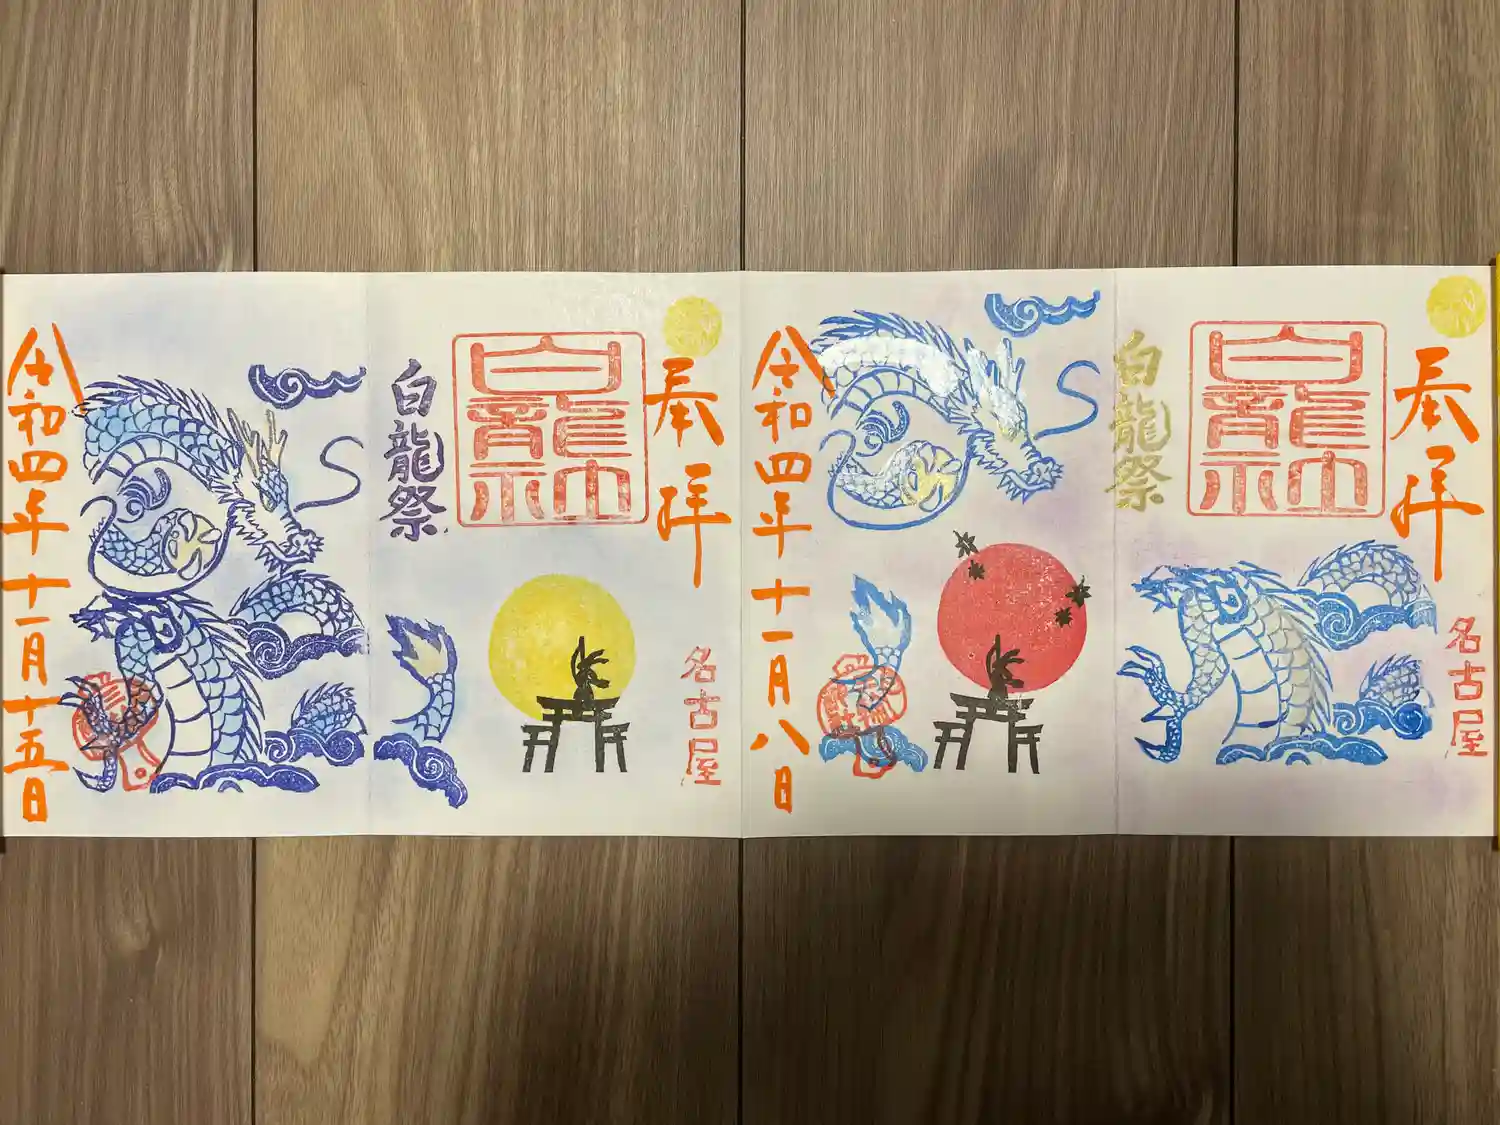 奉拝
名古屋
白龍社
白龍祭
令和四年十一月八日
奉拝
名古屋
白龍社
白龍祭
令和四年十一月十五日